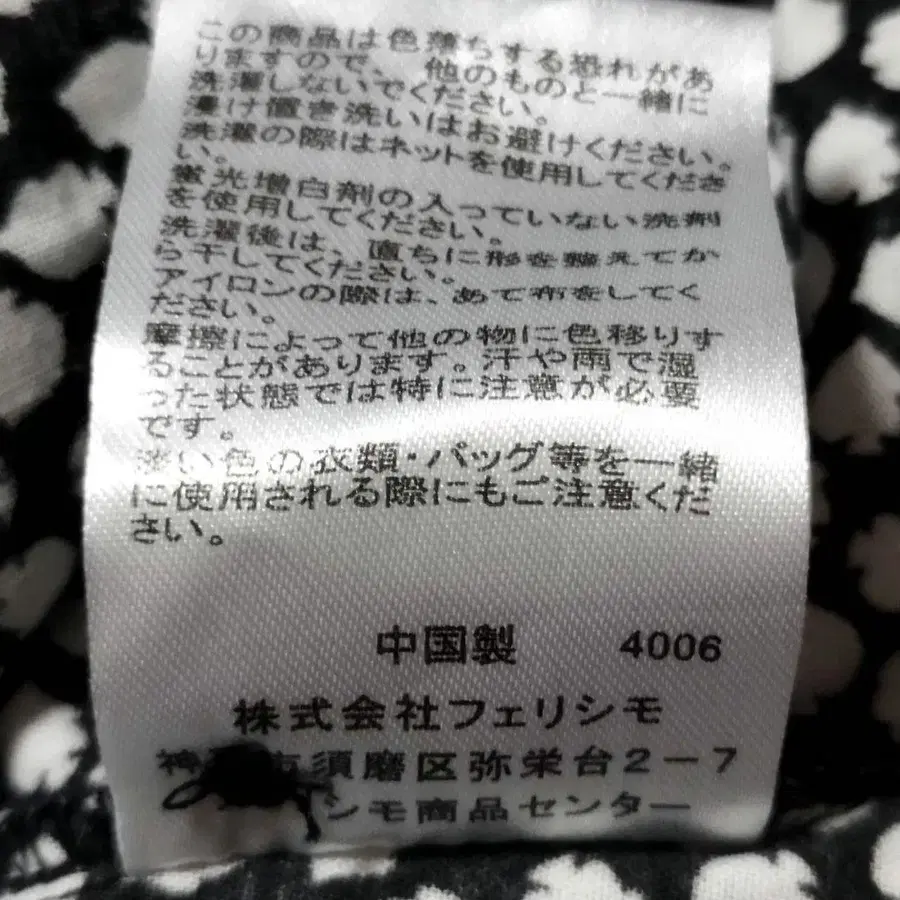 この商品は色落ちする恐れがあ
りますので、他のものと一緒に
洗濯しないでください。
浸け置き洗いはお避けください。
洗濯の際はネットを使用してくださ
い。
蛍光増白剤の入っていない洗剤
を使用してください。
洗濯後は、直ちに形を整えてか
ら干してください。
アイロンの際は、あて布をしてく
ださい。
摩擦によって他の物に色移りす
ることがあります。汗や雨で湿
った状態では特に注意が必要
です。
淡い色の衣類・バッグ等を一緒
に使用される際にもご注意くだ
さい。
中国製 4006
株式会社フェリシモ
市須磨区弥栄台2-7
シモ商品センター